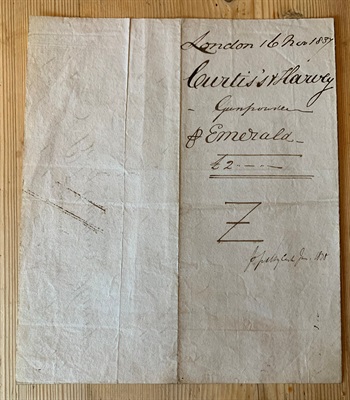 London 16 Nov 1837
Curtis's & Harvey
Gunpowder
₱ Emerald
£2 - - -
Z
Jan 1838